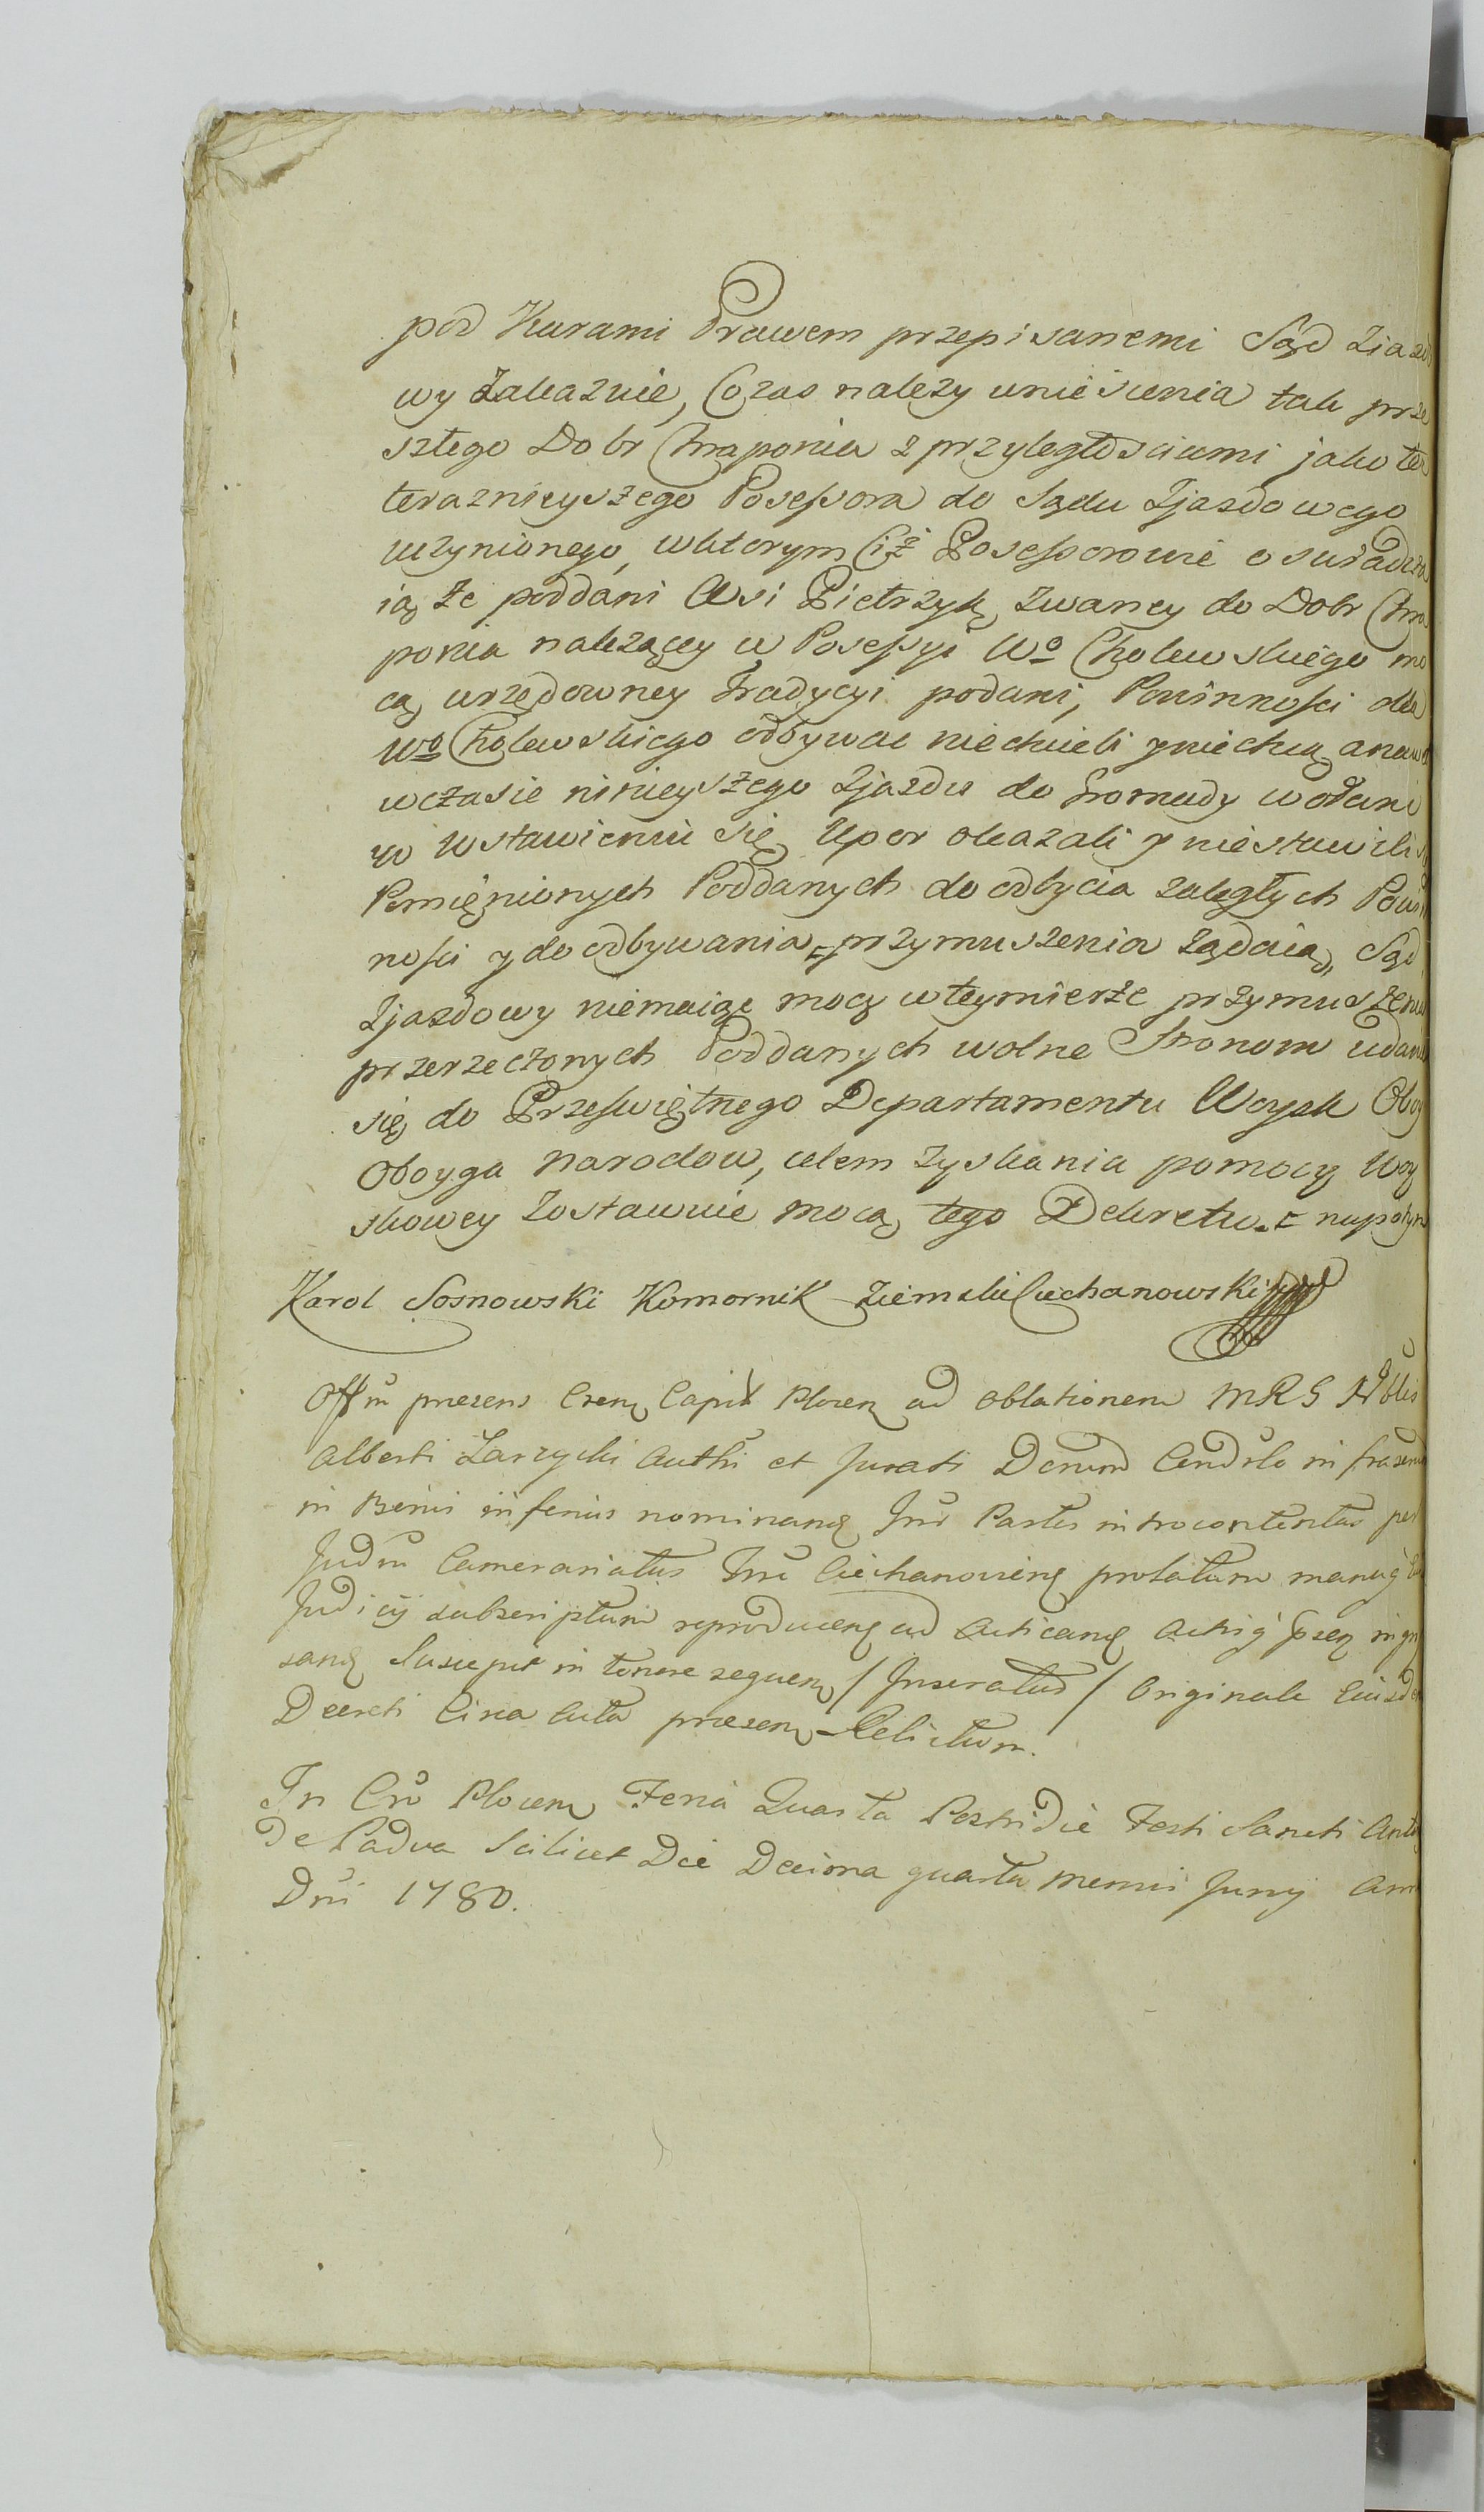 pod Karami Prawem przepisanemi Sąd Ziazdo
wy Zakazuie, Co zas nalezy uniesienia tak prze
szłego Dobr Chraponia z przyległosciami jako też
teraznieyszego Possessora do Sądu Zjazdowego
uczynionego, w ktorym Ciż Possessorowie oswiadcza
ią że poddani Wsi Pietrzyk zwaney do Dobr Chra
ponia nalezącey w Possessyi Wo Cholewskiego mo
cą urzędowney Tradycyi podani, Powinnosci dla
Wo Cholewskiego odbywac niechcieli y niechcą a nawet
w czasie ninieyszego Zjazdu do Gromady wołani
w wstawieniu się Upor okazali y niestawili się
Pomięnionych Poddanych do odbycia zaległych Powin
nosci y do odbywania przymuszenia żądaią, Sąd
Zjazdowy niemaiąc mocy w teymierze przymuszenia
przerzeczonych Poddanych wolne Stronom udanie
się do Przeswiętnego Departamentu Woysk Oboy
Oboyga Narodow, celem zyskania pomocy Woy
skowey zostawuie mocą tego Dekretu. napotym
Karol Sosnowski Komornik Ziemski Ciechanowski
Offm presens Crens Capit Plocen ad oblationem MRS Nobilis
Alberti Zarzycki Authi et Jurati Decrum Condrle infrascri
in Bonis inferius nominand Inr Partes introcontentas per
Judm Camerariatus Trrr Ciechanoviens prolatum manuq Eius
Judicij subscriptum reproducend ad acticand Actisq psen ingros
sand Suscepit in tenore sequen / Inseratur / Originale Eiusdem
Decreti Circa Acta presens Relictum.
In Cro Plocen Feria Quarta Postridie Festi Sancti Anto
De Padua Scilicet Die Decima quarta Mensis Junij Anno
Dni 1780.